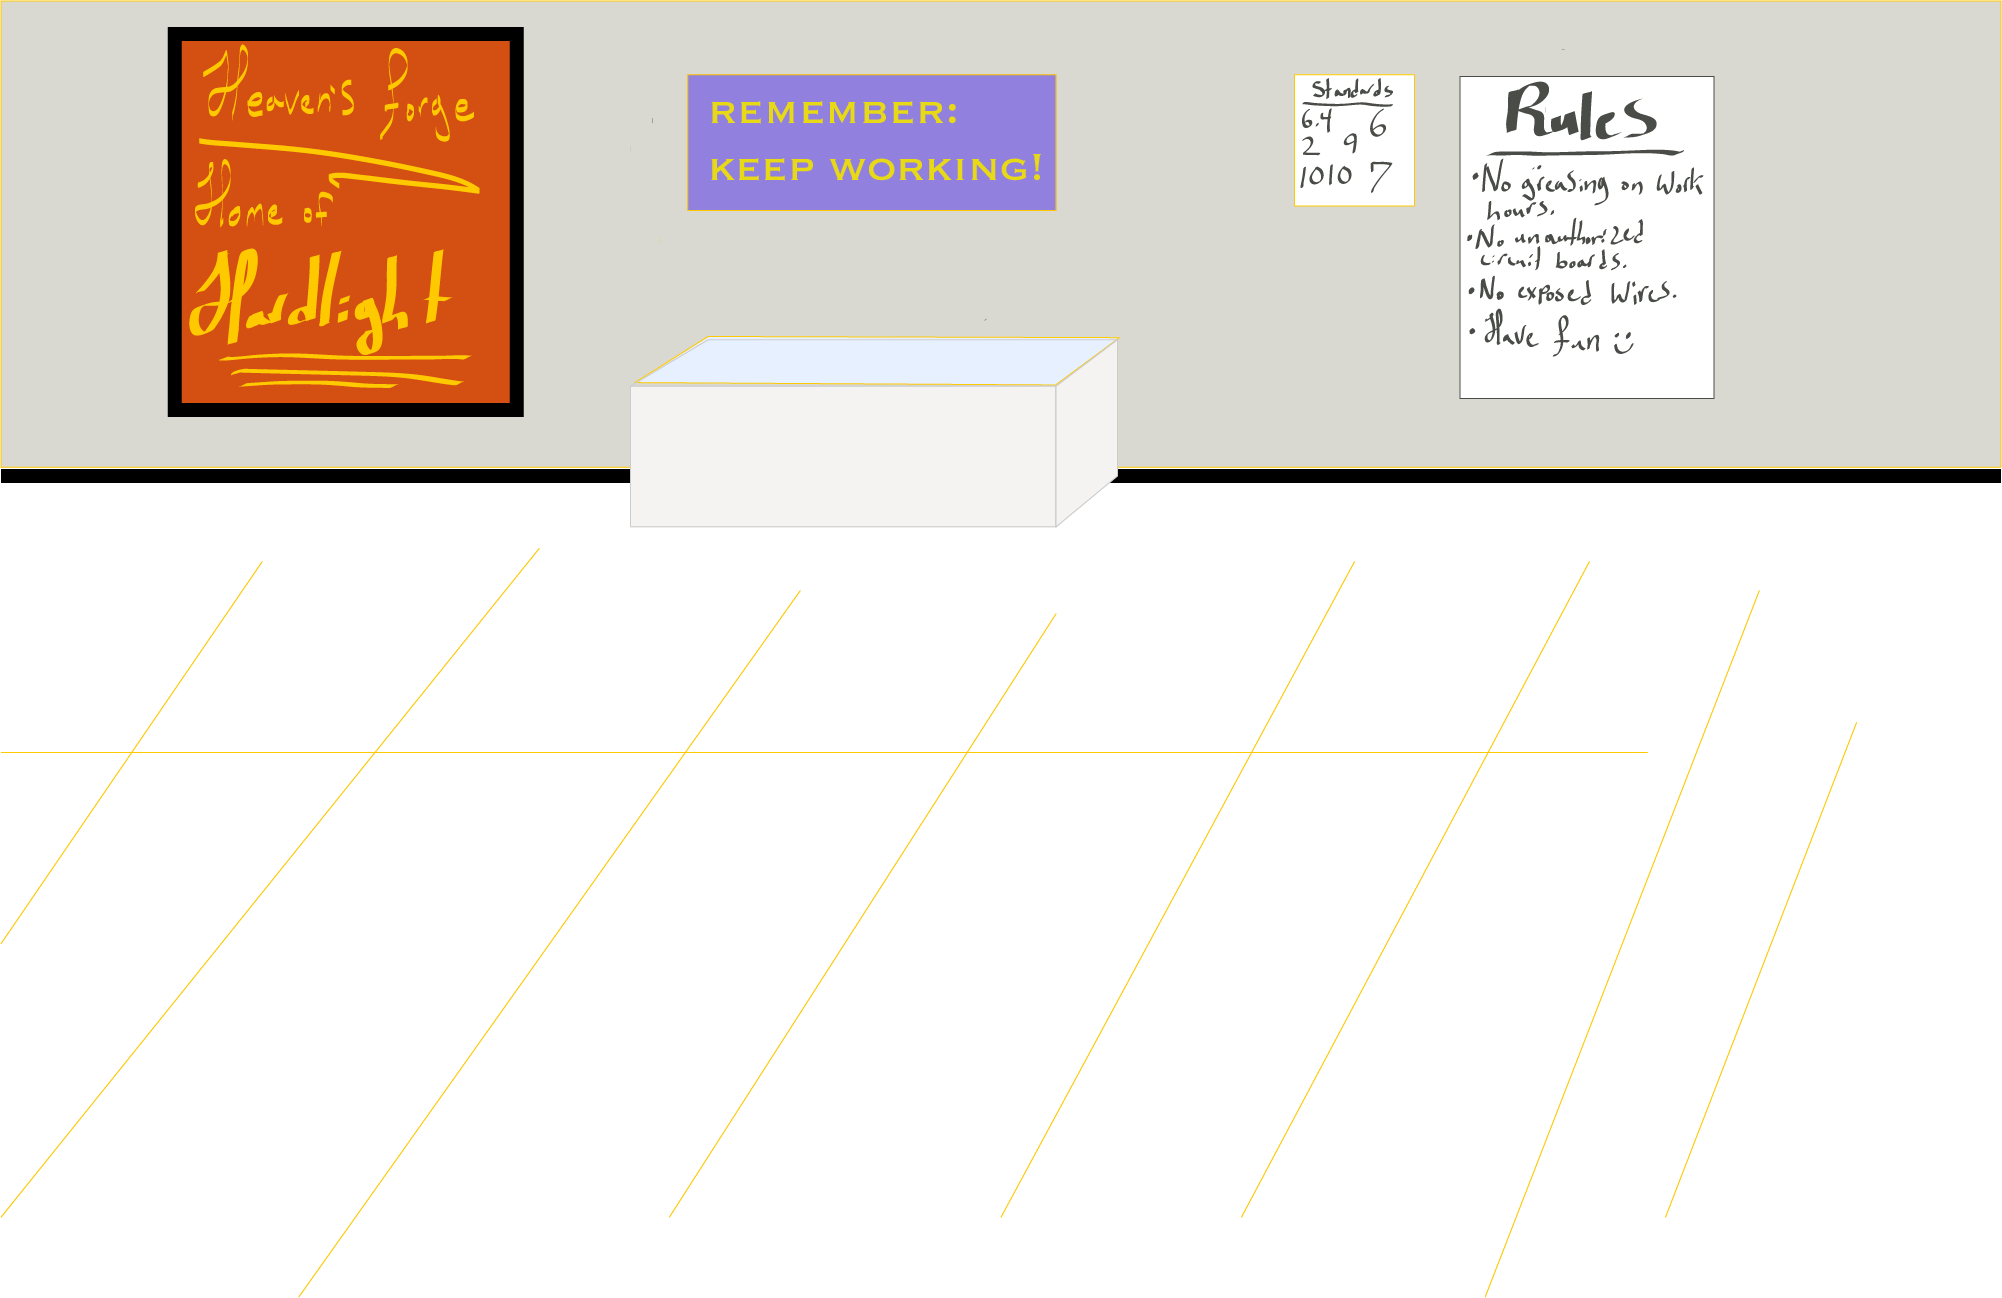 Heaven's forge
Home of
Hardlight
REMEMBER:
KEEP WORKING!
Standards
6.4 6
2 9
1010 7
Rules
•No greasing on work
hours.
•No unauthorized
circuit boards.
•No exposed wires.
•Have fun :)